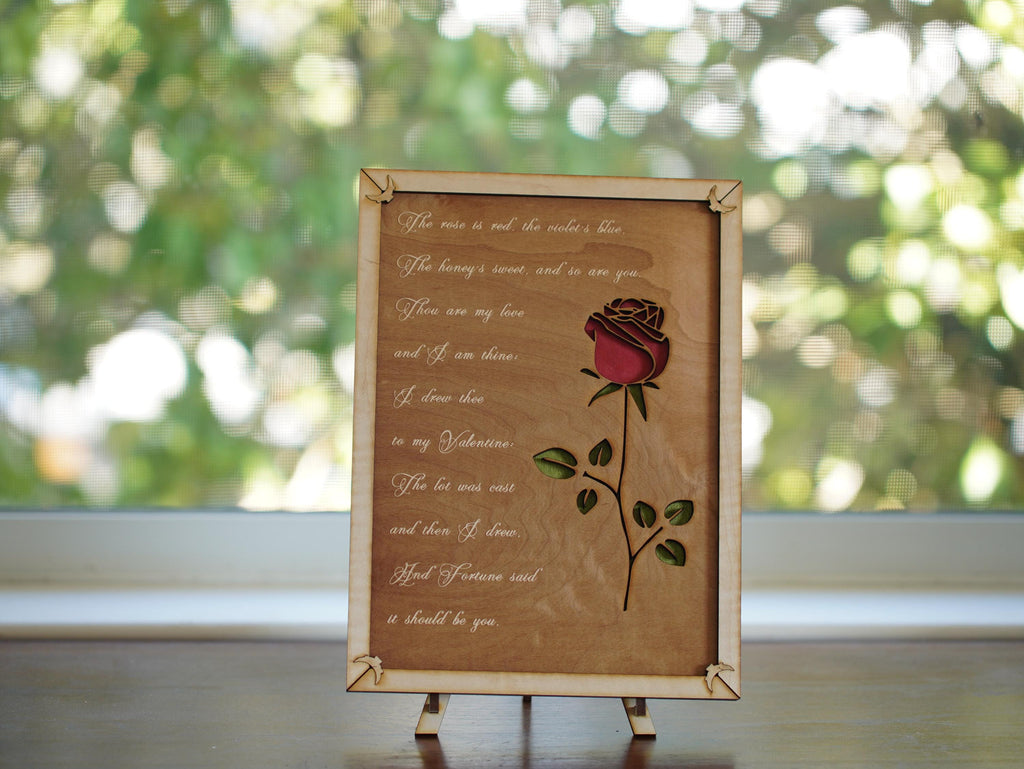 The rose is red, the violet's blue,
The honey's sweet, and so are you.
Thou are my love
and I am thine;
I drew thee
to my Valentine:
The lot was cast
and then I drew,
And Fortune said
it should be you.